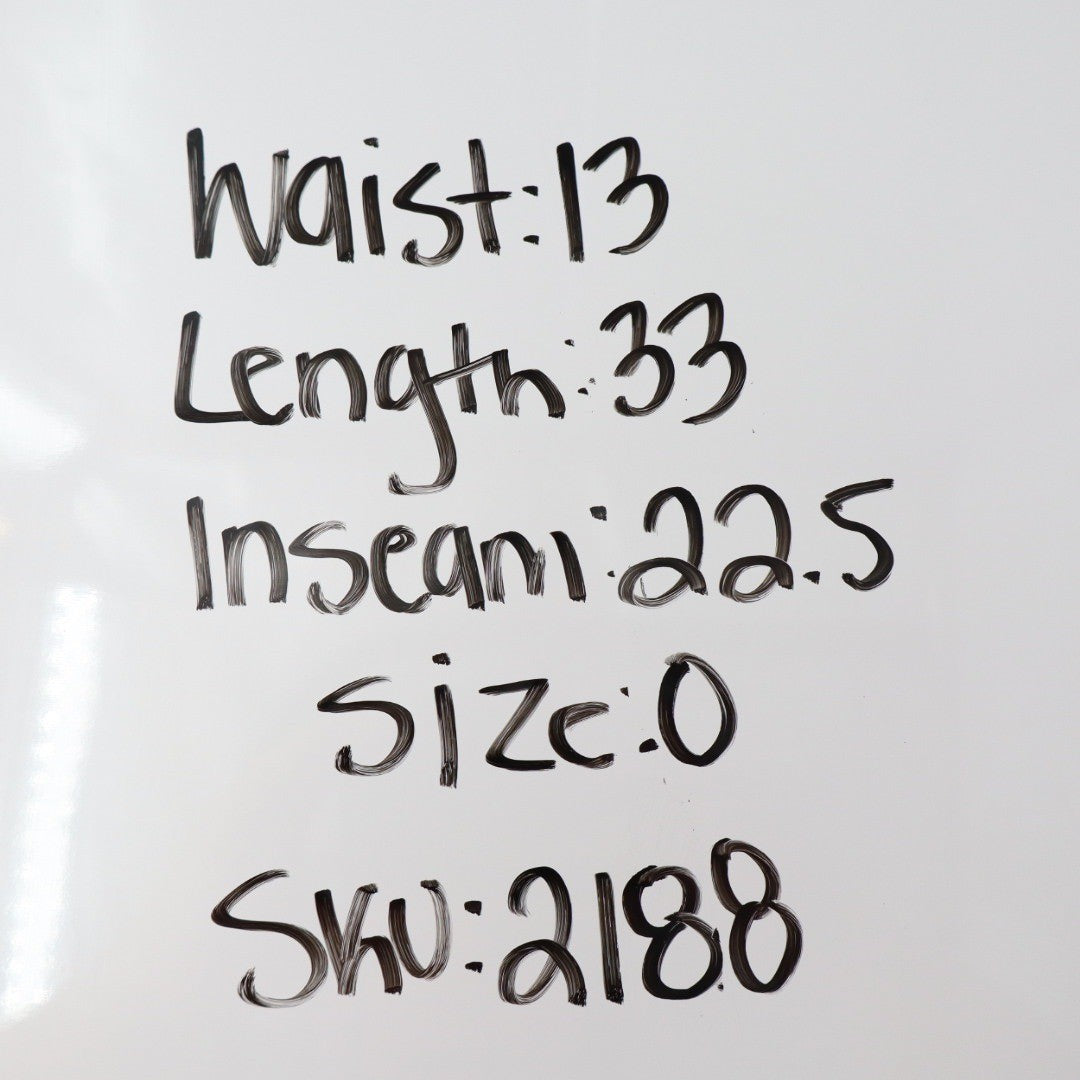 Waist:13
Length:33
Inseam:22.5
Size:0
SKU:2188